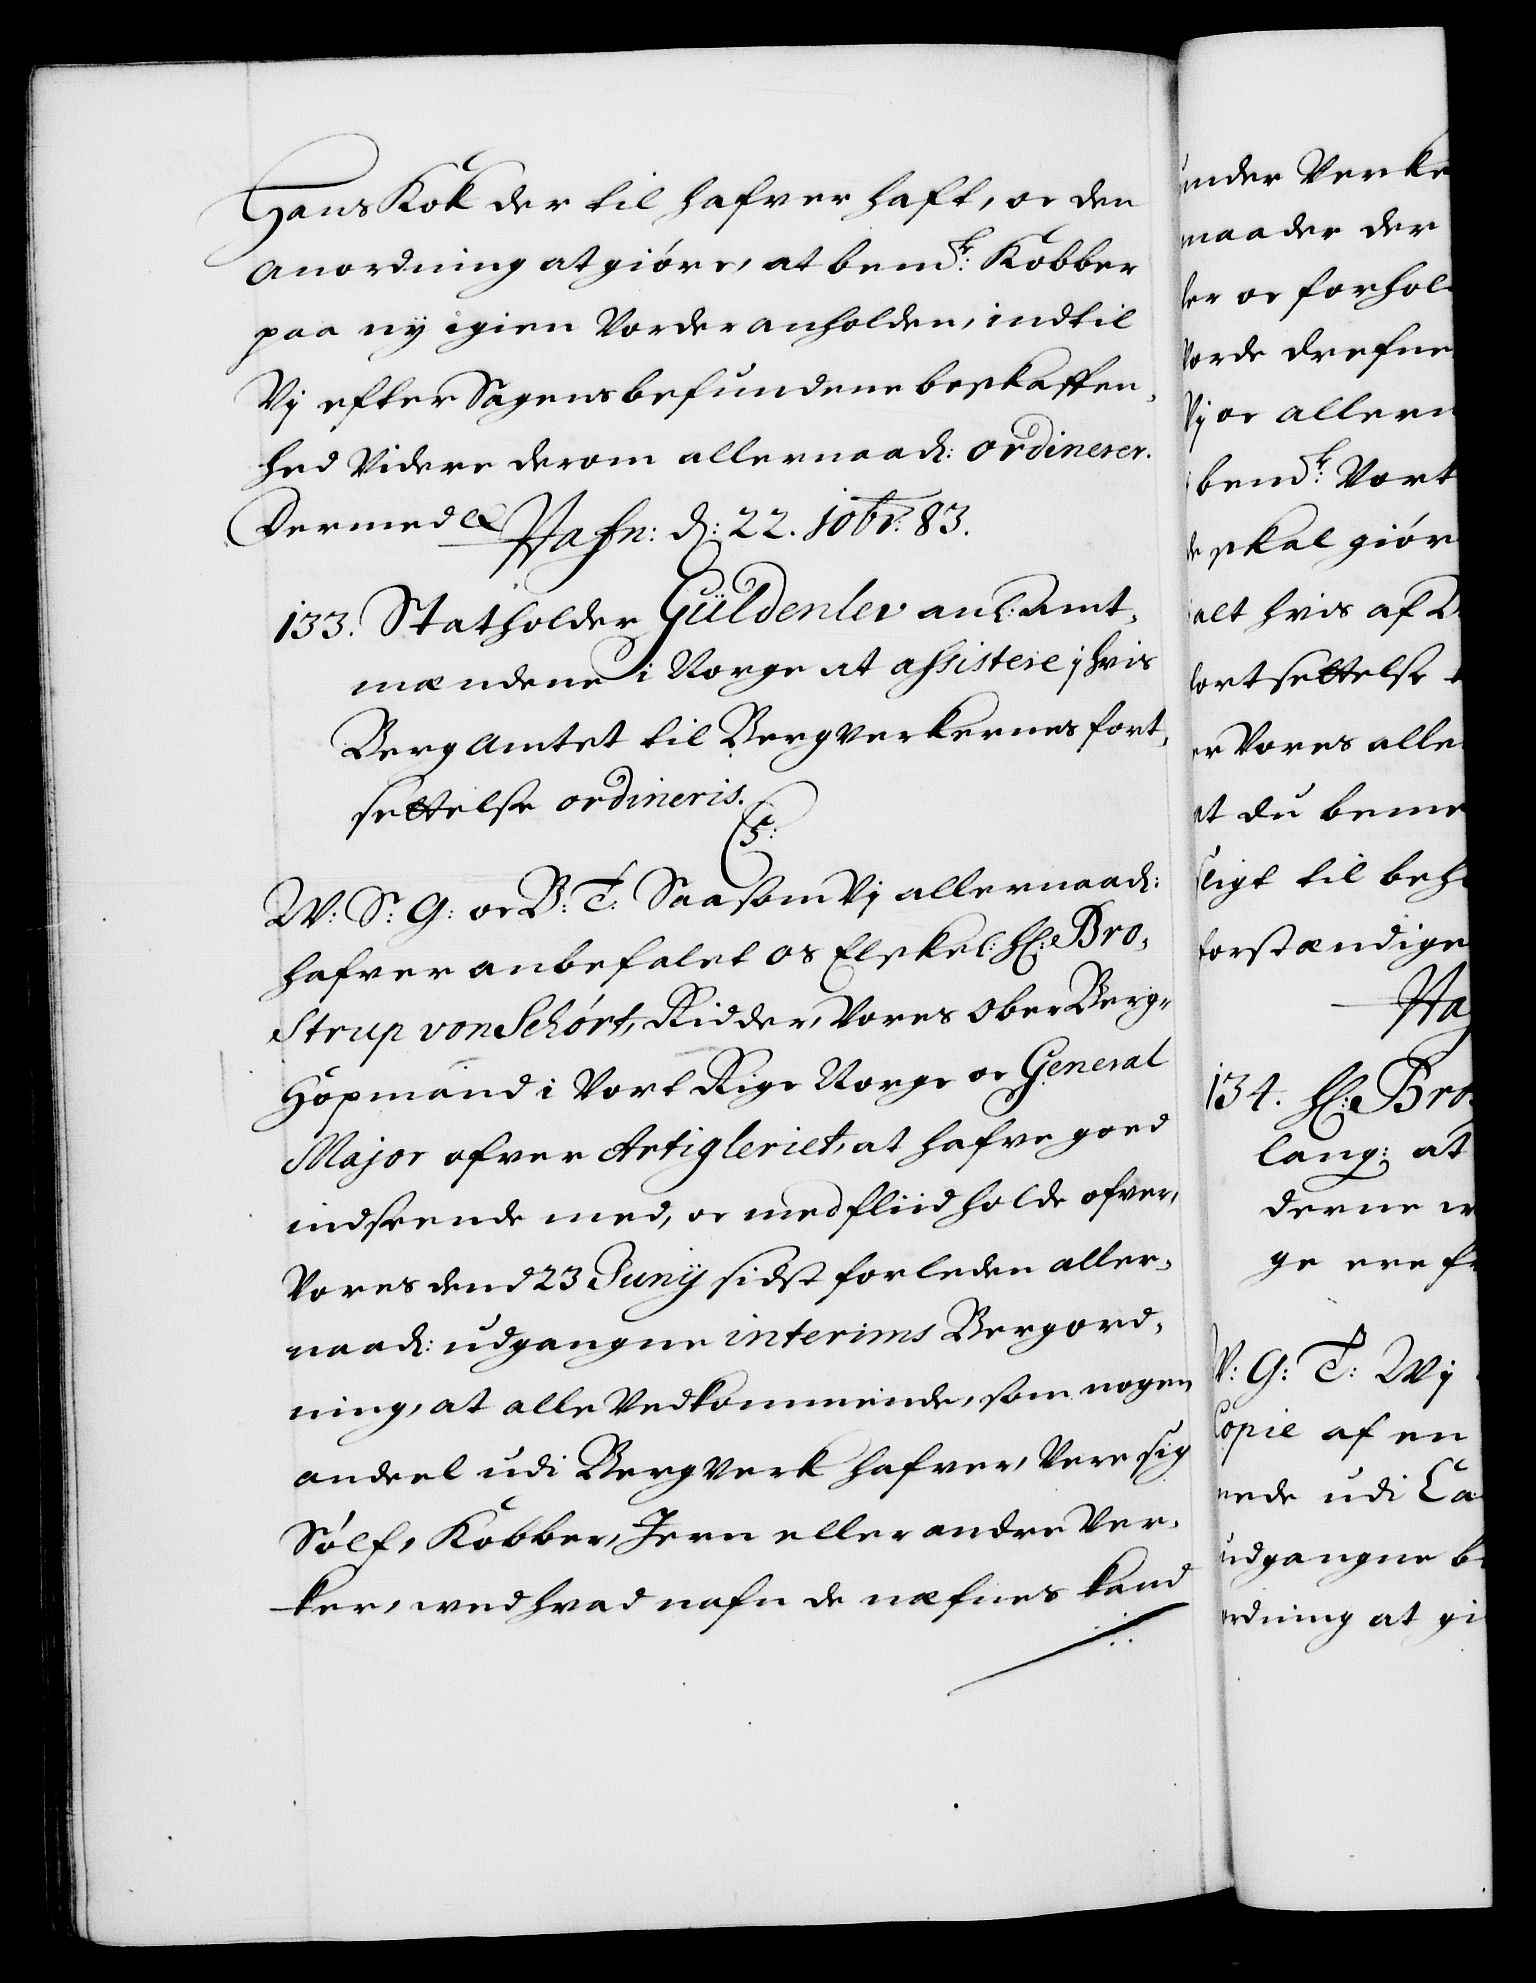 Hans Kok der til hafver haft, oc den
anordning at giöre, at bem.te: Kobber
paa nÿ igien Vorder anholden, indtil
Vj efter Sagens befundene beskaffen,
hed Videre derom allernaad: ordinerer.
Dermed &c Hafn: d: 22. 10br: 83.
133. Statholder Güldenlev anl: Amt,
mændene i Norge at assistere j hvis
Berg Amtet til Bergverkernes fort,
settelse ordineris.
C5:
W: S: G: oc B: T: Saasom Vj allernaad:
hafver anbefalet os Elskel: Hr: Bro,
Strup von Schört, Ridder, Vores Ober Berg-
Höpmand i Vort Rige Norge oc General
Major ofver Artigleriet, at hafve goed
indseende med, oc med fliid holde ofver,
Vores dend 23 Junij sidst forleden aller,
naad: udgangne interims Bergord,
ning, at alle Vedkommende, som nogen
andeel udi Bergverk hafver, Vere sig
Sölf, Kobber, Jern eller andre Ver,
ker, wed hvad nafn de næfnes kand
under Verke
maader der
der oc forhol
Vorde drefne
Vj oc allern
bem.te: Vort
de skal giör
alt hvis af D
fortsettelse
er Vores alle
at du beme
sligt til beh
forstændige
Ha
134. Hr: Bro,
lang: at
derne w
ge ere fr
W: G: T: Wj
Copie af en
nede udi Ca
udgangne b
ordning at gi